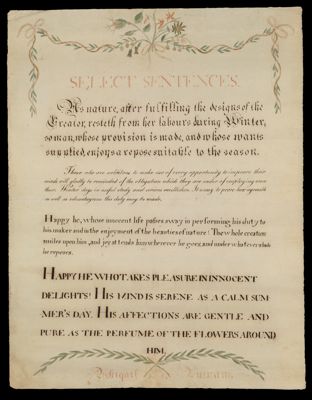 SELECT SENTENCES.
As nature, after fulfilling the designs of the
Creator, resteth from her labours during Winter,
so man, whose provision is made, and whose wants
supplied, enjoys a repose suitable to the season.
Those who are solicitous to make use of every opportunity to improve their
minds will gladly be reminded of the obligation which they are under of employing even
these Winter days in useful study and serious meditation. to prove how agreeable
as well as advantageous this duty may be made.
Happy he, whose innocent life passes away in performing his duty to
his maker and in the enjoyment of the beauties of nature! The whole creation
smiles upon him, and joy attends him wherever he goes, and under whatever shade
he reposes.
HAPPY HE WHO TAKES PLEASURE IN INNOCENT
DELIGHTS! HIS MIND IS SERENE AS A CALM SUM-
MER'S DAY. HIS AFFECTIONS ARE GENTLE AND
PURE AS THE PERFUME OF THE FLOWERS AROUND
HIM.
Abigail Putnam.